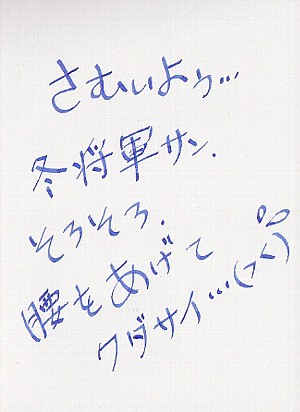 さむいよぅ…
冬将軍サン.
そろそろ.
腰をあげて
クダサイ…(>_<)